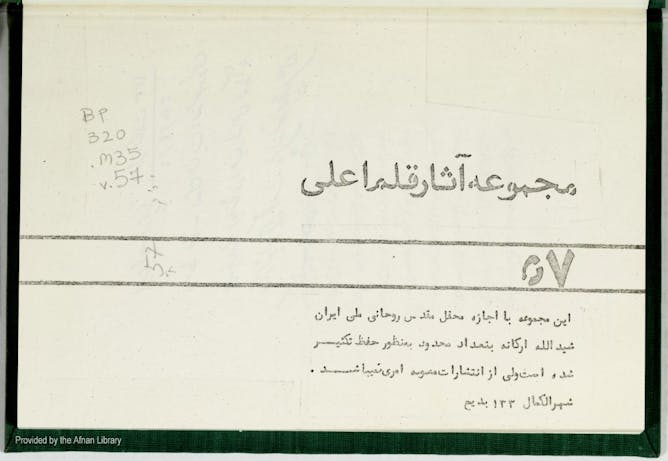 BP
320
.M35
v.57
مجموعه آثار قلم اعلی
57
۵۷
این مجموعه با اجازه محفل مقدس روحانی ملی ایران
شیدالله ارکانه بتعداد محدود بمنظور حفظ تکثیر
شده است ولی از انتشارات مصوبه امری نمیباشد .
شهرالکمال ۱۳۳ بدیع
Provided by the Afnan Library